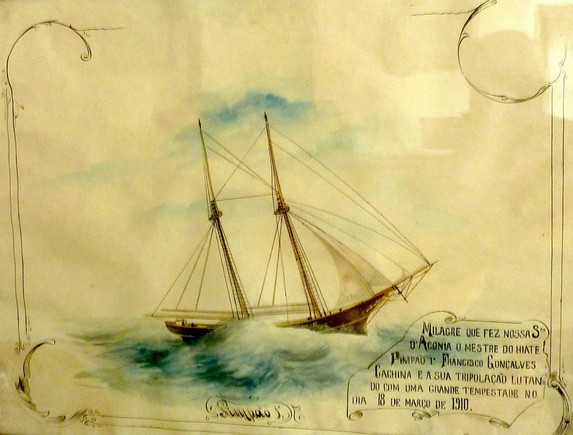 MILAGRE QUE FEZ NOSSA Sra
D'AGONIA O MESTRE DO HIATE
PIMPÃO 1º FRANCISCO GONCALVES
CACHINA E A SUA TRIPOLAÇÃO LUTAN
DO COM UMA GRANDE TEMPESTADE NO
DIA 18 DE MARÇO DE 1910.